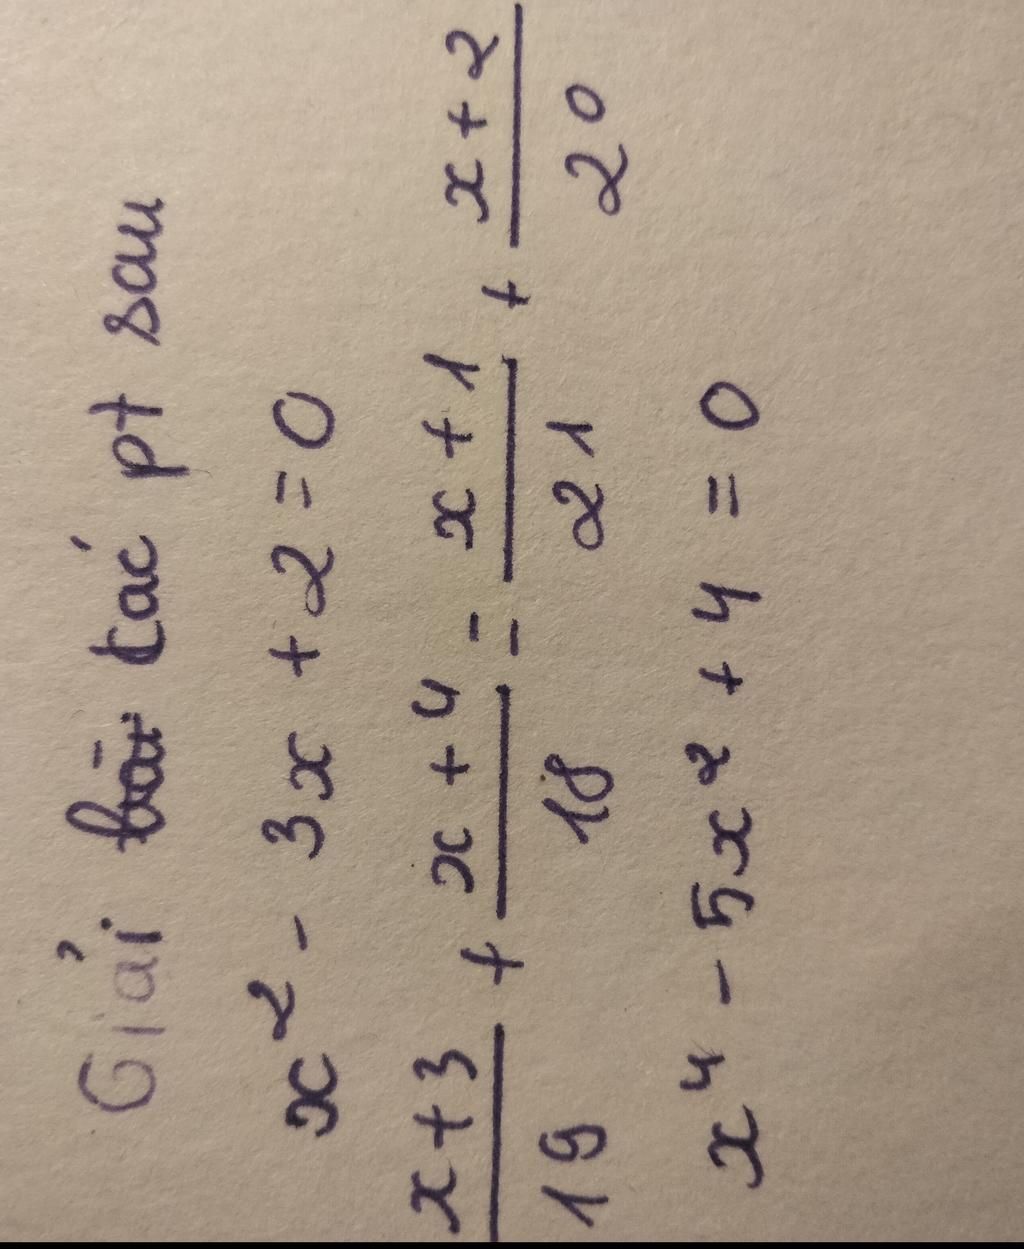 Giải các pt sau
x² - 3x + 2 = 0
(x+3)/19 + (x+4)/18 = (x+1)/21 + (x+2)/20
x⁴ - 5x² + 4 = 0